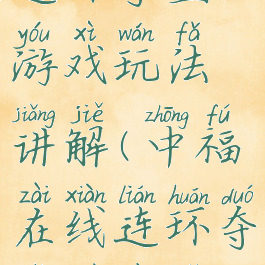 yóu xì wán fǎ
游戏玩法
jiǎng jiě zhōng fú
讲解(中福
zài xiàn lián huán duó
在线连环夺